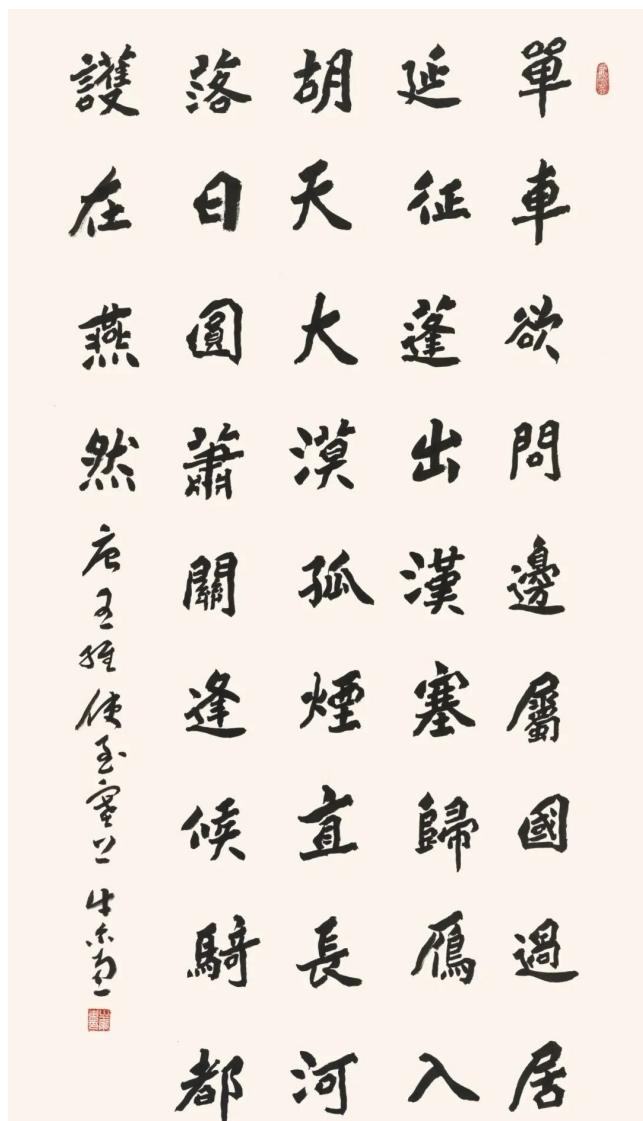 單車欲問邊屬國過居
延征蓬出漢塞歸鴈入
胡天大漠孤煙直長河
落日圓蕭關逢候騎都
護在燕然
唐王維使至塞上